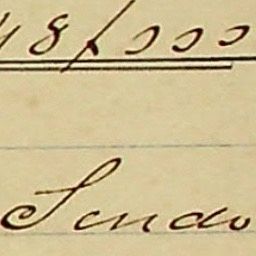 48$000
Sendo